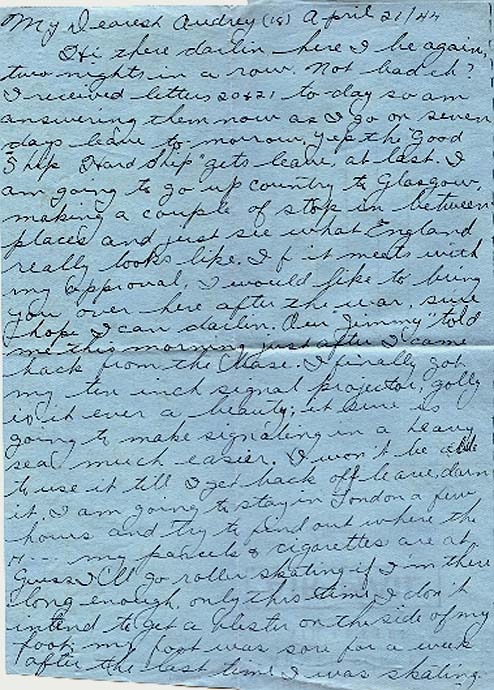 My Dearest Audrey (18) April 21/44
Hi there darlin here I be again,
two nights in a row. Not bad eh?
I received letters 20 & 21 to-day so am
answering them now as I go on seven
days leave to-morrow, yep the "Good
Ship Hard Ship" gets leave, at last. I
am going to go up country to Glasgow,
making a couple of stops in between
places and just see what England
really looks like. If it meets with
my approval, I would like to bring
you over here after the war, sure
hope I can darlin. Our "Jimmy" told
me this morning just after I came
back from the Base. I finally got
my ten inch signal projector, golly
is it ever a beauty; it sure is
going to make signaling in a heavy
sea much easier. I won't be able
to use it till I get back off leave, darn
it. I am going to stay in London a few
hours and try to find out where the
H--- my parcels & cigarettes are at.
Guess I'll go roller skating if I'm there
long enough, only this time I don't
intend to get a blister on the side of my
foot; my foot was sore for a week
after the last time I was skating.